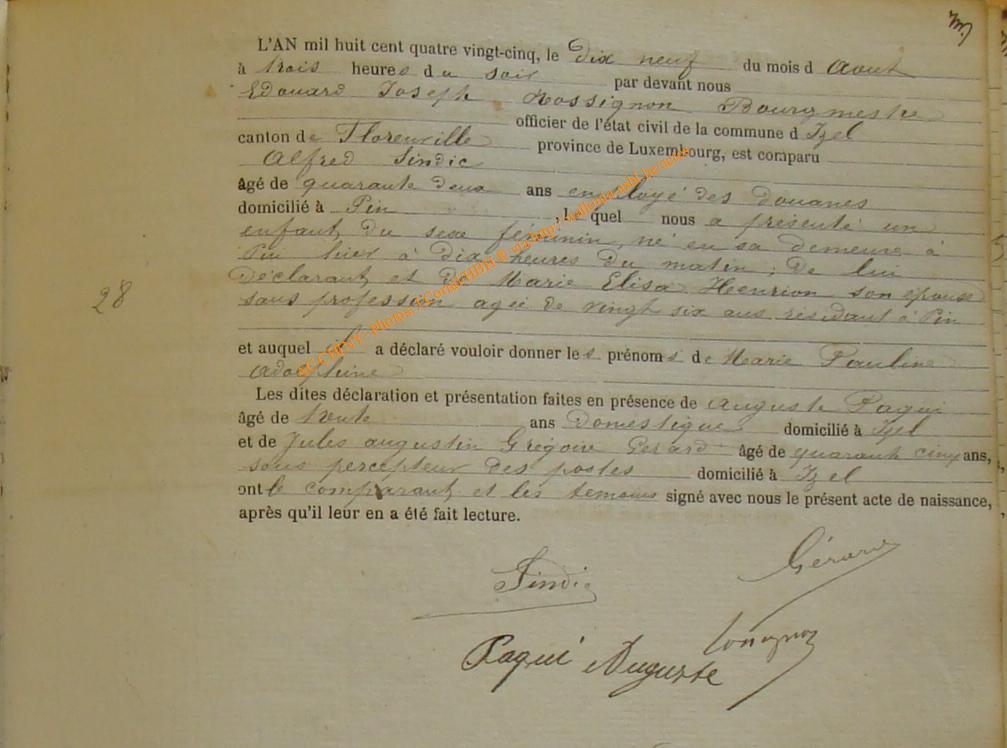 L'AN mil huit cent quatre vingt-cinq, le dix neuf du mois d Aout
à trois heures du soir par devant nous
Edouard Joseph Rossignon Bourgmestre
officier de l'état civil de la commune d Izel
canton de Florenville province de Luxembourg, est comparu
Alfred Sindic
âgé de quarante deux ans employé des douanes
domicilié à Pin, le quel nous a présenté un
enfant du sexe féminin, né en sa demeure à
Pin hier à dix heures du matin, de lui
Déclarant et de Marie Elisa Henrion son épouse
sans profession agée de vingt six ans résidant à Pin
28
et auquel il a déclaré vouloir donner les prénoms de Marie Pauline
Adolphine
Les dites déclaration et présentation faites en présence de Auguste Paqui
âgé de trente ans Domestique domicilié à Izel
et de Jules Augustin Grégoire Gérard âgé de quarante cinq ans,
sous percepteur des postes domicilié à Izel
ont le comparant et les temoins signé avec nous le présent acte de naissance,
après qu'il leur en a été fait lecture.
Sindic Gérard
Paqui Auguste